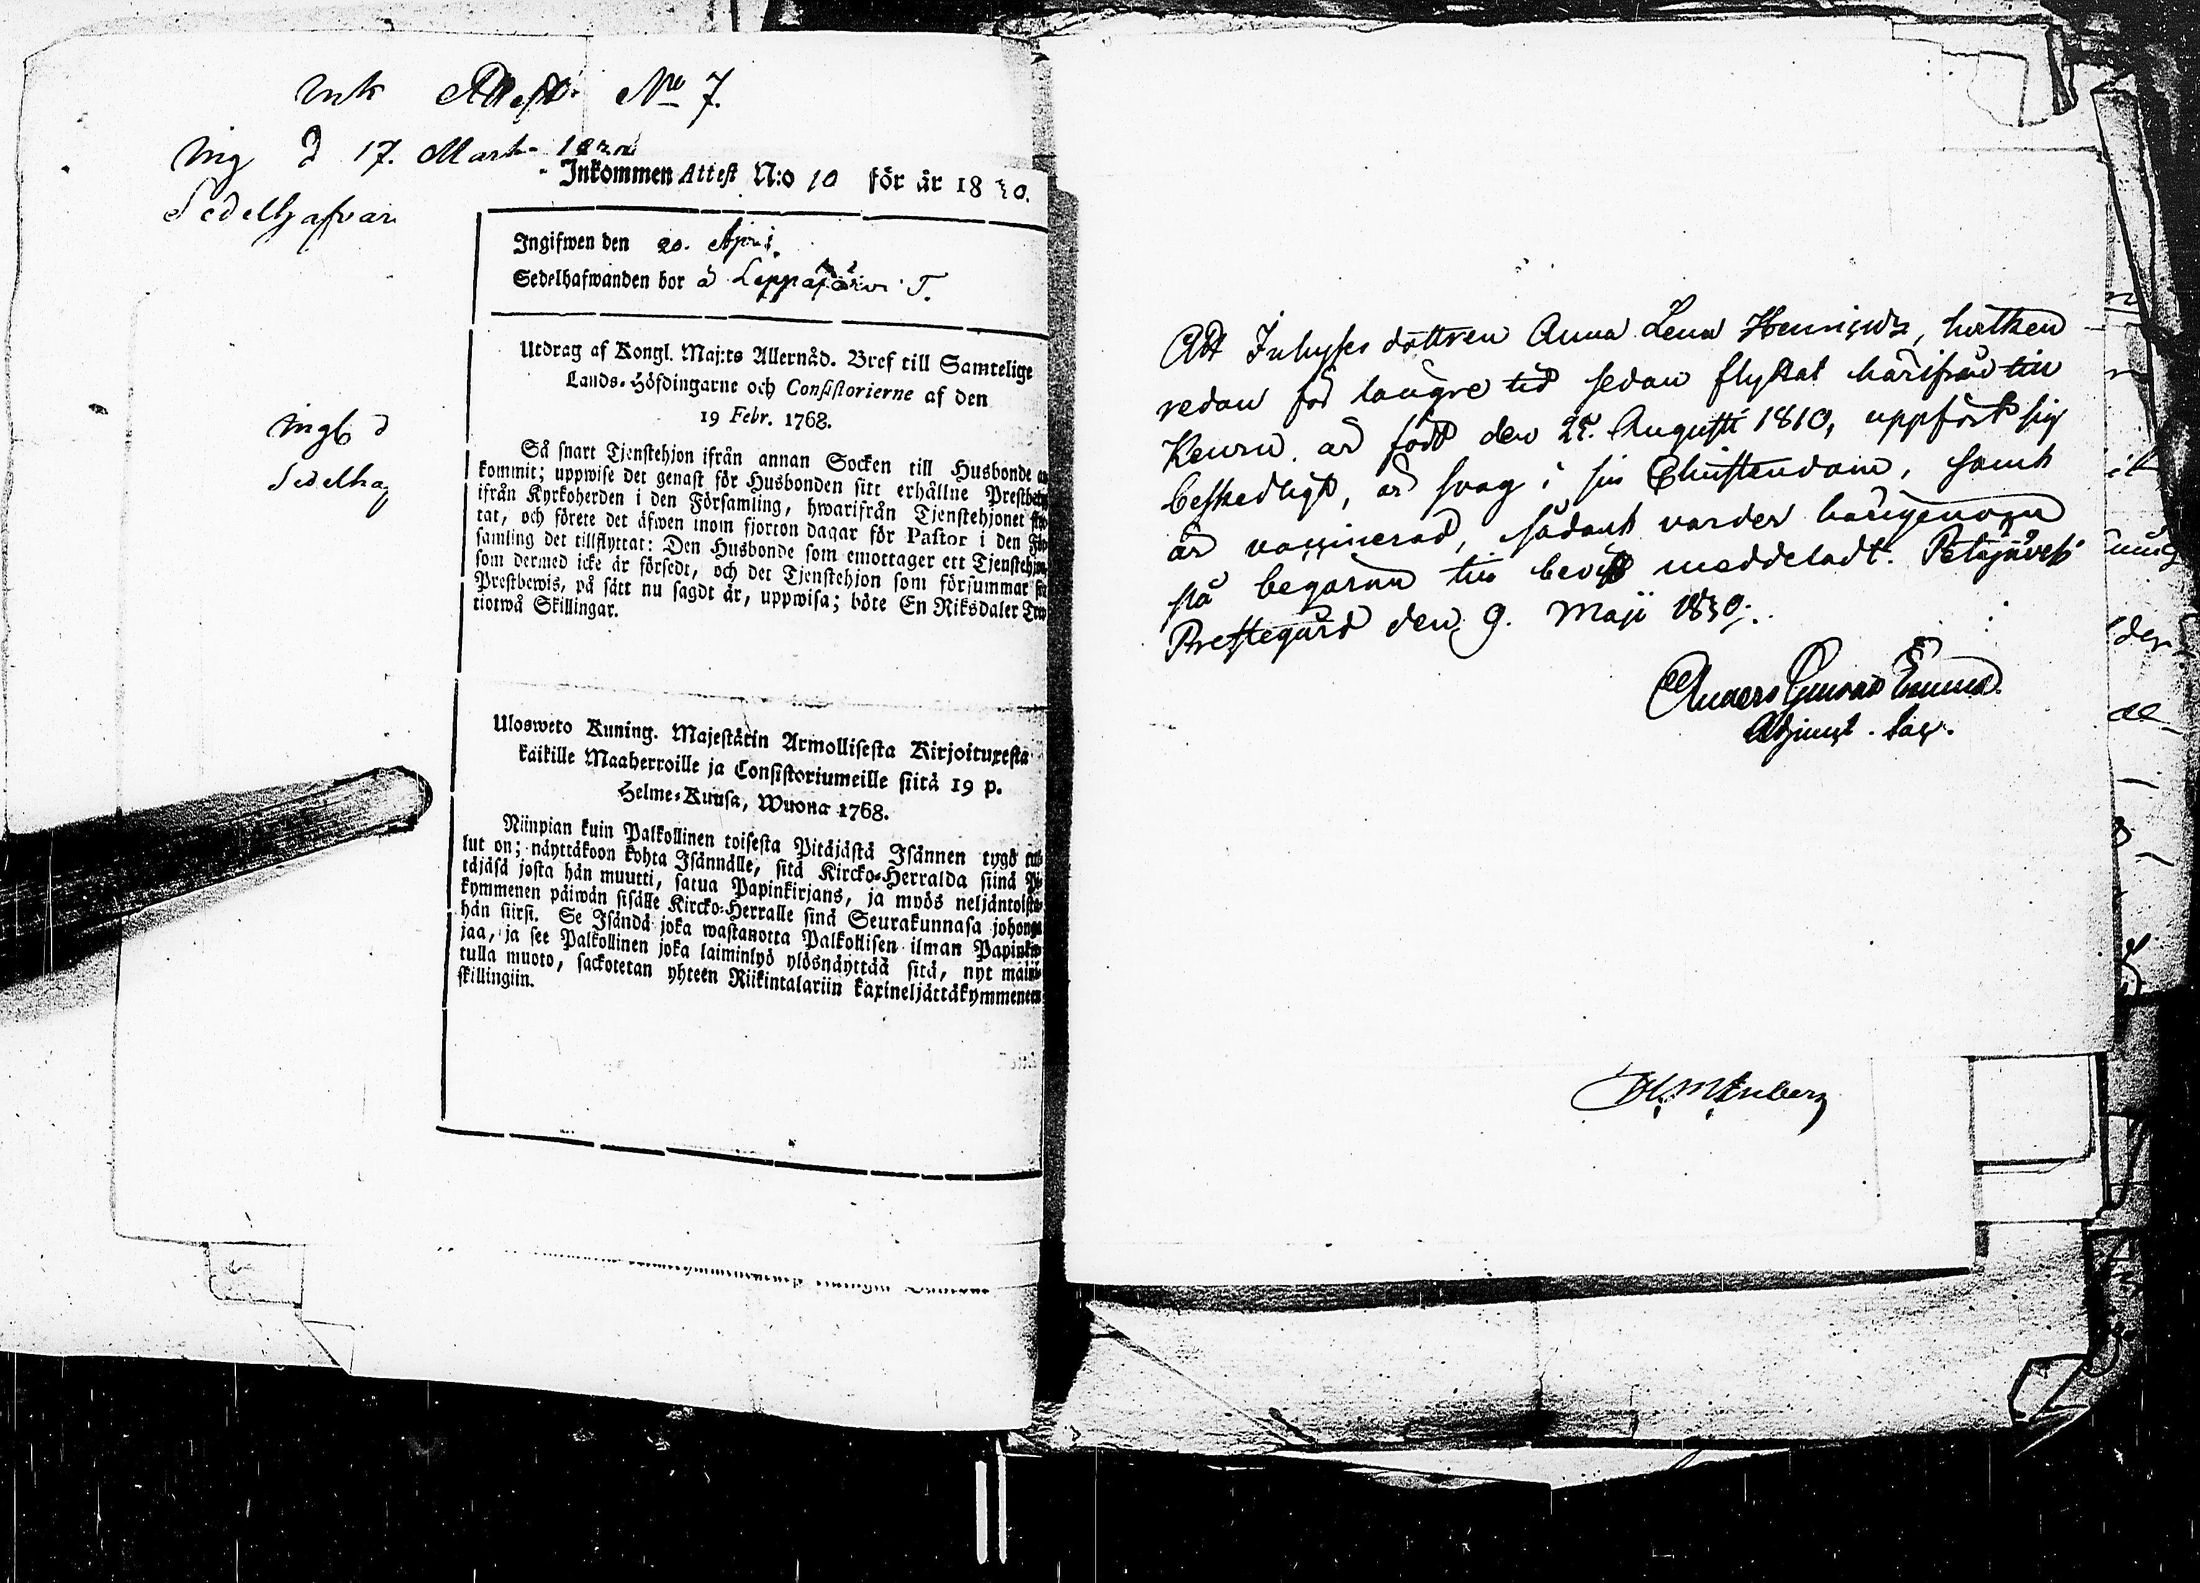 Ink Attest No 7.
Ing d 17. Mart.
Sedelhafvan
Ingb d
Sedelhaf
Inkommen Attest N:o 10 för år 1830.
Ingifwen den 20. Apri
Sedelhafwanden bor å Leppäjärvi T.
Utdrag af Kongl. Maj:ts Allernåd. Bref till Samtelige
Lands-Höfdingarne och Consistorierne af den
19 Febr. 1768.
Så snart Tjenstehjon ifrån annan Socken till Husbonde
kommit; uppwise det genast för Husbonden sitt erhållne
ifrån Kyrkoherden i den Församling, hwarifrån Tjenstehjonet
tat, och förete det äfwen inom fjorton dagar för Pastor i den
samling det tillflyttat: Den Husbonde som emottager ett
som dermed icke är försedt, och det Tjenstehjon som försummar
Prestbewis, på sätt nu sagdt är, uppwisa; böte En Riksdaler
tiotwå Skillingar.
Ulosweto Kuning. Majestätin Armollisesta Kirjoituxesta
kaikille Maaherroille ja Consistoriumeille siitä 19 p.
Helme-Kuusa, Wuona 1768.
Niinpian kuin Palkollinen toisesta Pitäjästä Isännen tygö
lut on; näyttäkoon kohta Isännälle, sitä Kircko-Herralda siinä
täjäsä josta hän muutti, satua Papinkirjans, ja myös
kymmenen päiwän sisälle Kircko-Herralle sinä Seurakunnasa
hän siirsi. Se Isändä joka wastanotta Palkollisen ilman
jaa, ja see Palkollinen joka laiminlyö ylösnäyttää sitä, nyt
tulla muoto, sackotetan yhteen Riikintalariin kaxineljättäkymmeneen
skillingiin.
Att Inhyses dottren Anna Lena Henricsdr, hvilken
redan för längre tid sedan flyttat härifrån till
Keuru, är född den 25. Augusti 1810, uppfört sig
beskedligt, är svag i sin Christendom, samt
är vaccinerad, sådant varder härigenom
på begäran till bevis meddeladt. Petäjävesi
Prestegård den 9. Maji 1830.
Anders Gunnar
Adjunct. Sac.